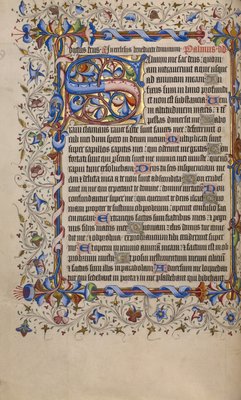 deus. Benedicite dominum. Psalmus
Salvum me fac deus: quoniam
intraverunt aque usque
ad animam meam
sum in limo profundi:
et non est substantia
clamans rauce facte sunt fauces mee: defecerunt
oculi mei dum spero in deum meum Multiplicati sunt
super capillos capitis mei: qui oderunt me gratis Con
fortati sunt qui persecuti sunt me inimici mei iniuste: que non
rapui tunc exsolvebam Deus tu scis insipientiam me
am: et delicta mea a te non sunt abscondita Non erubes
cant in me qui expectant te domine: domine
confundantur super me: qui querunt te deus
am propter te sustinui opprobrium: operuit confusio
meam Extraneus factus sum fratribus meis: et pere
grinus filiis matris mee zelus domus tue
me: et opprobria exprobrantium tibi ceciderunt super
me Et operui in ieiunio animam meam: et factum est in
opprobrium Et posui vestimentum meum cilicium:
et factus sum illis in parabolam Adversum me loquebantur
qui sedebant in porta: et in me psallebant qui bibebant